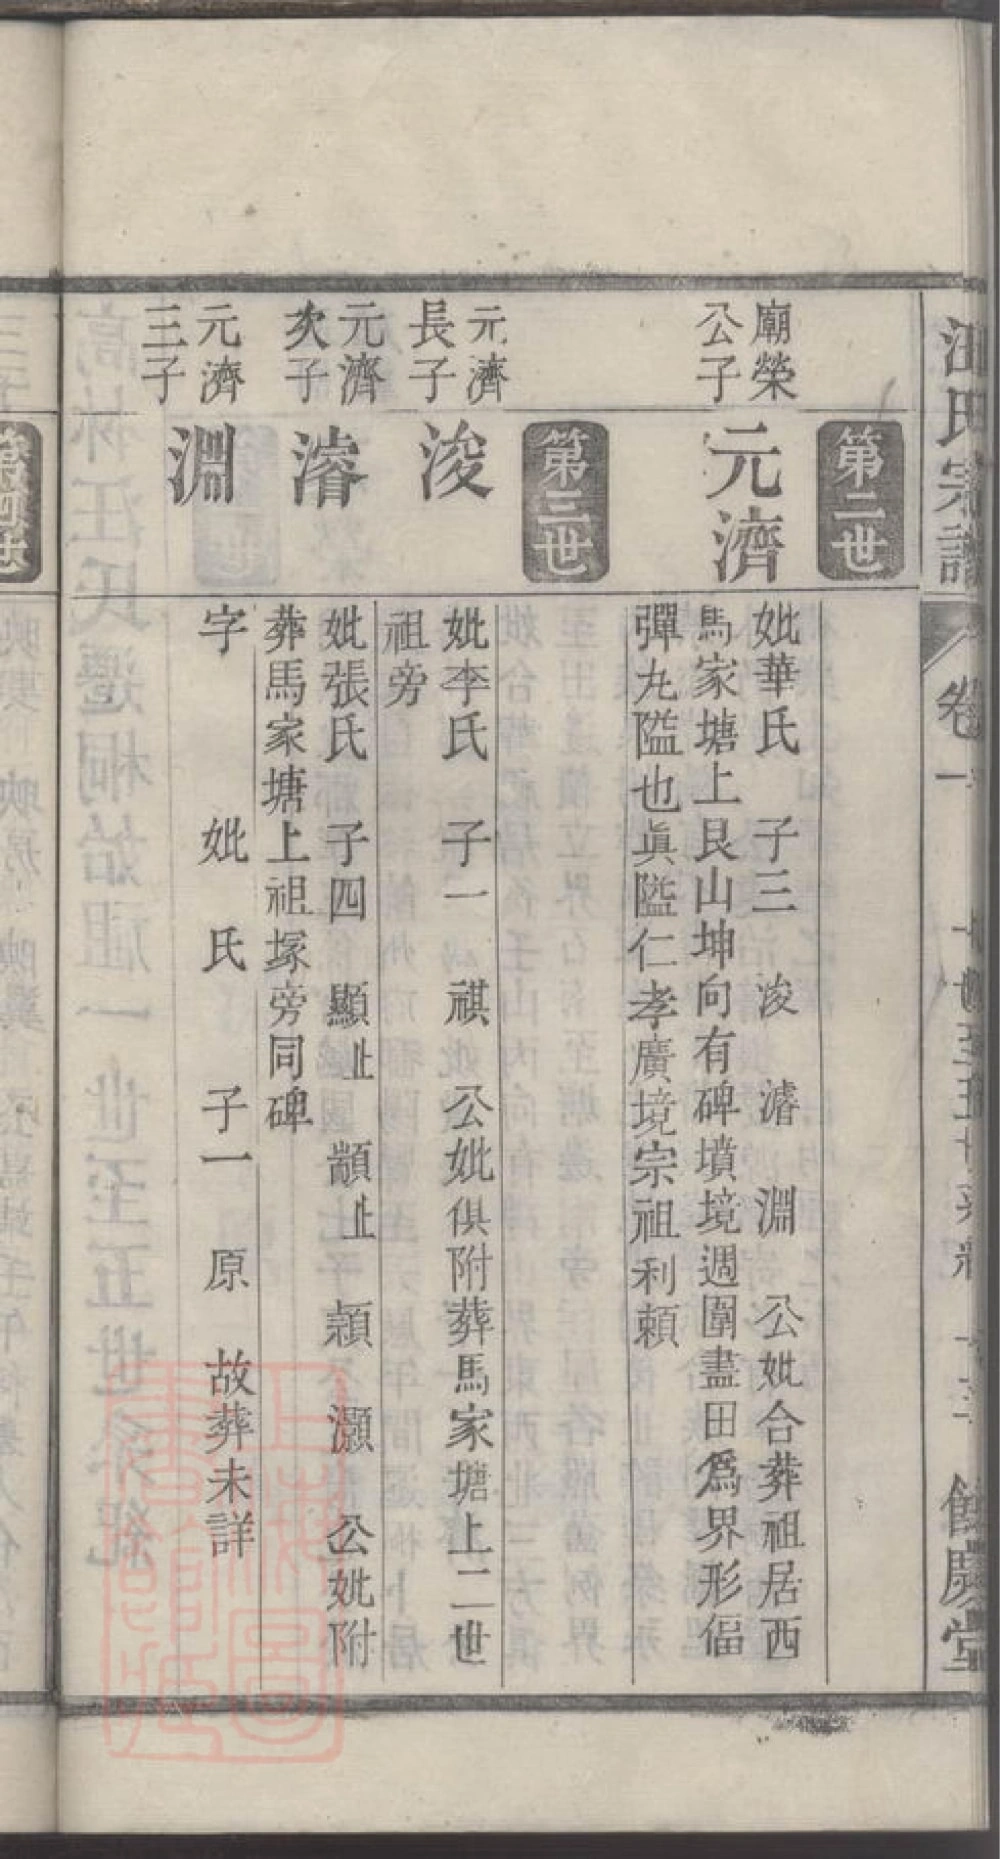 汪氏宗譜
卷一
一世至五世系紀
餘慶堂
第二世
廟榮
公子
元濟
妣華氏 子三 浚 濬 淵 公妣合葬祖居西
馬家塘上艮山坤向有碑墳境週圍盡田為界形偪
彈丸隘也真隘仁孝廣境宗祖利賴
第三世
元濟
長子
浚
妣李氏 子一 祺 公妣俱附葬馬家塘上二世
祖旁
元濟
次子
濬
妣張氏 子四 顯止 顓止 顈 灝 公妣附
葬馬家塘上祖塚旁同碑
元濟
三子
淵
字 妣 氏 子一 原 故葬未詳